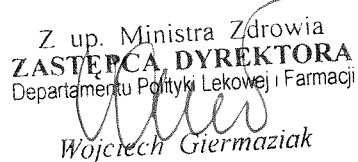 Z up. Ministra Zdrowia
ZASTĘPCA DYREKTORA
Departamentu Polityki Lekowej i Farmacji
Wojciech Giermaziak